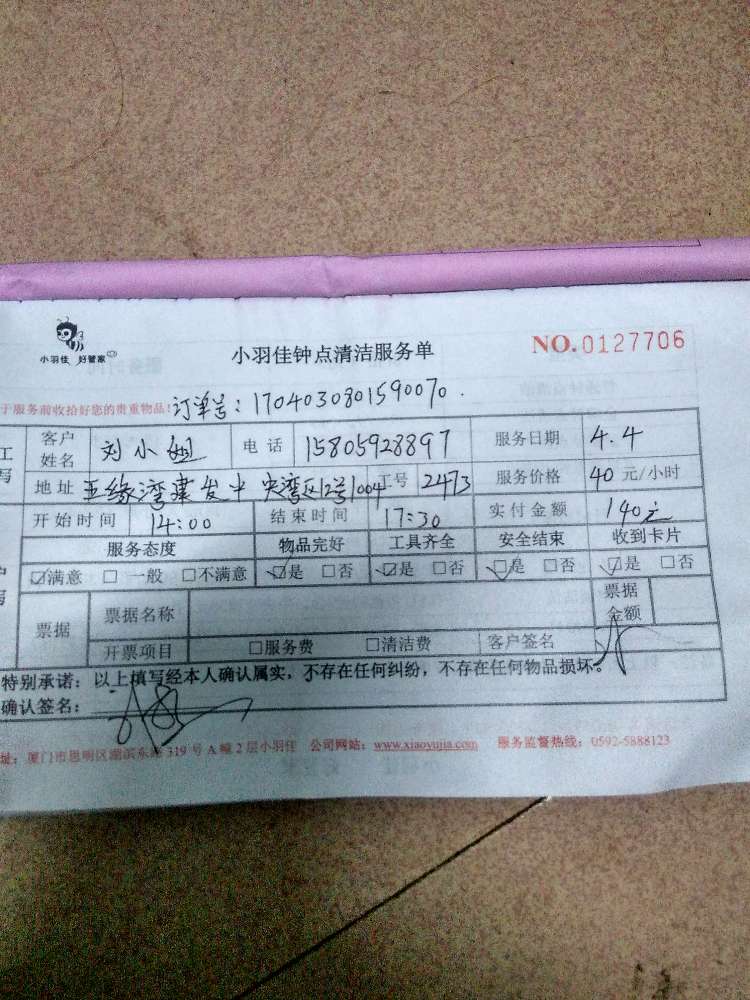 小羽佳 好管家
小羽佳钟点清洁服务单
NO. 0127706
于服务前收拾好您的贵重物品! 订单号: 1704030801590070.
工 客户姓名 刘小姐 电话 15805928897 服务日期 4.4
写 地址 五缘湾建发中央湾区12号1004 工号 2473 服务价格 40 元/小时
开始时间 14:00 结束时间 17:30 实付金额 140元
服务态度 物品完好 工具齐全 安全结束 收到卡片
☑满意 □一般 □不满意 ☑是 □否 ☑是 □否 ☑是 □否 ☑是 □否
票据 票据名称 票据金额
开票项目 □服务费 □清洁费 客户签名
特别承诺: 以上填写经本人确认属实, 不存在任何纠纷, 不存在任何物品损坏。
确认签名:
址: 厦门市思明区湖滨东路 319 号 A 幢 2 层小羽佳 公司网站: www.xiaoyujia.com 服务监督热线: 0592-5888123